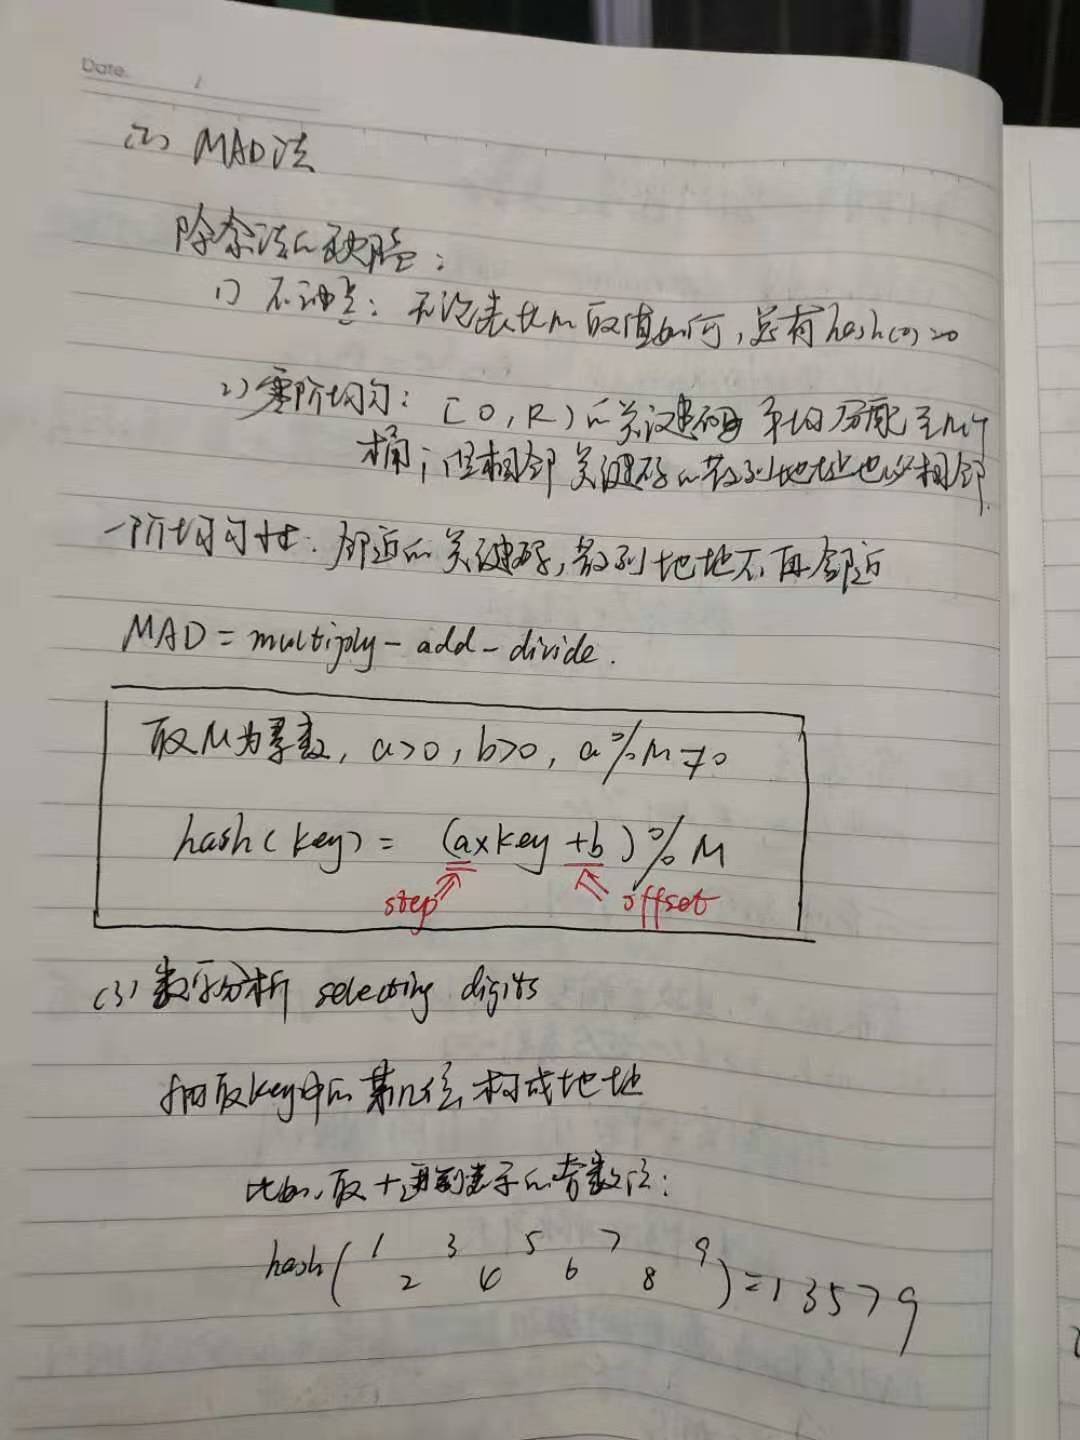 Date.
(2) MAD法
除余法的缺陷:
1) 不动点: 不论表长M取值如何,总有hash(0)=0
2) 零阶均匀: [0,R)的关键码 平均分配至M个
桶; 但相邻关键码的散列地址也必相邻.
一阶均匀性: 邻近的关键码,散列地址不再邻近
MAD = multiply-add-divide.
取M为素数, a>0, b>0, a%M≠0
hash(key) = (a×key+b)%M
step offset
(3) 数字分析 selecting digits
抽取key中的某几位,构成地址
比如,取十进制表示的奇数位:
hash(1 2 3 4 5 6 7 8 9)=13579